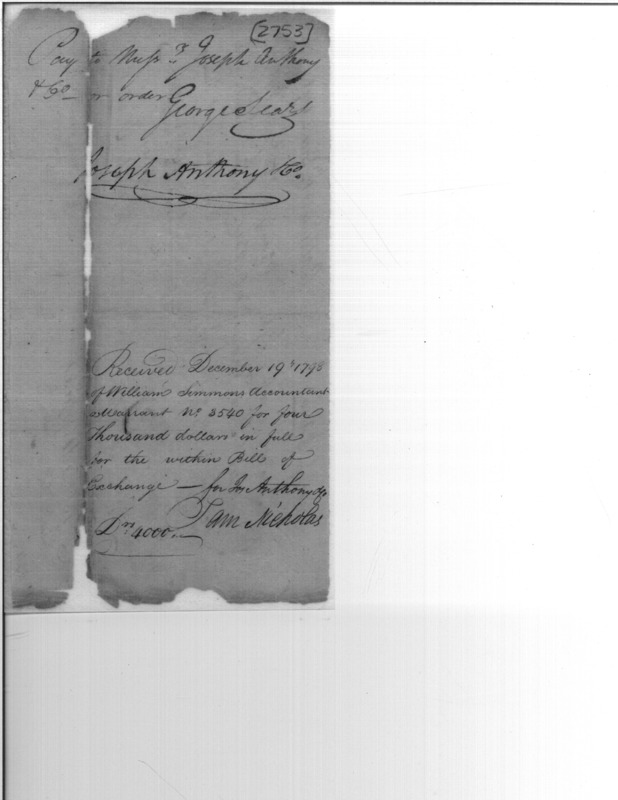 [2753]
Pay to Messrs Joseph Anthony
& Co or order
George Sears
Joseph Anthony & Co.
Received December 19th 1798
of William Simmons Accountant
a Warrant No 3540 for four
thousand dollars in full
for the within Bill of
Exchange — for Jos Anthony & Co
Drs 4000.. Sam Nicholas